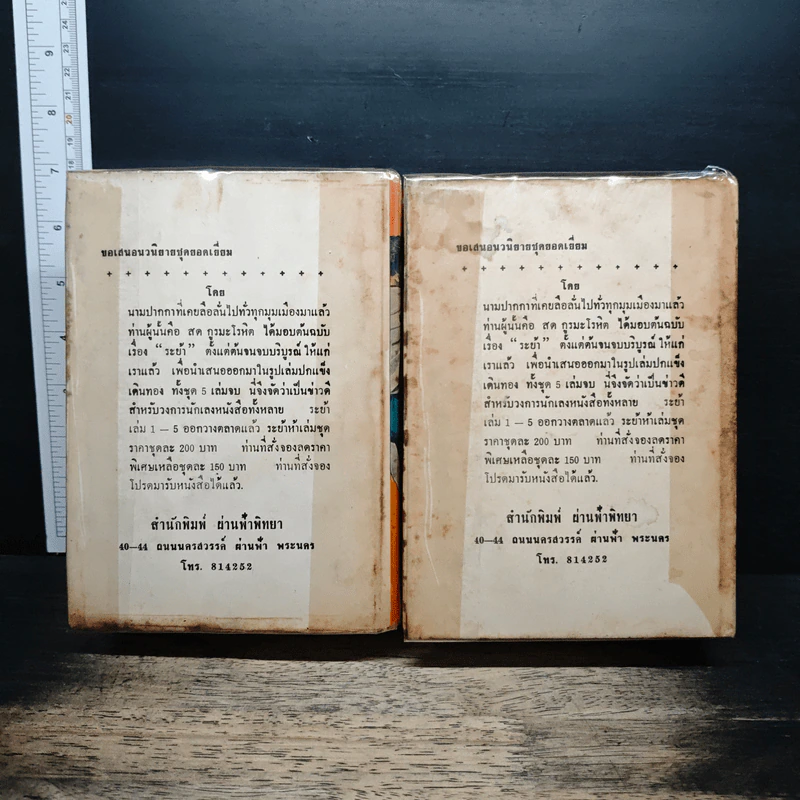 9
8
7
6
5
24
23
22
21
20
19
18
ขอเสนอนวนิยายชุดยอดเยี่ยม
+ + + + + + + + + + + +
โดย
นามปากกาที่เคยลือลั่นไปทั่วทุกมุมเมืองมาแล้ว
ท่านผู้นั้นคือ สด กูรมะโรหิต ได้มอบต้นฉบับ
เรื่อง “ระย้า” ตั้งแต่ต้นจนจบบริบูรณ์ ให้แก่
เราแล้ว เพื่อนำเสนอออกมาในรูปเล่มปกแข็ง
เดินทอง ทั้งชุด 5 เล่มจบ นี่จึงจัดว่าเป็นข่าวดี
สำหรับวงการนักเลงหนังสือทั้งหลาย ระย้า
เล่ม 1 — 5 ออกวางตลาดแล้ว ระย้าห้าเล่มชุด
ราคาชุดละ 200 บาท ท่านที่สั่งจองลดราคา
พิเศษเหลือชุดละ 150 บาท ท่านที่สั่งจอง
โปรดมารับหนังสือได้แล้ว.
สำนักพิมพ์ ผ่านฟ้าพิทยา
40—44 ถนนนครสวรรค์ ผ่านฟ้า พระนคร
โทร. 814252
ขอเสนอนวนิยายชุดยอดเยี่ยม
+ + + + + + + + + + + +
โดย
นามปากกาที่เคยลือลั่นไปทั่วทุกมุมเมืองมาแล้ว
ท่านผู้นั้นคือ สด กูรมะโรหิต ได้มอบต้นฉบับ
เรื่อง “ระย้า” ตั้งแต่ต้นจนจบบริบูรณ์ ให้แก่
เราแล้ว เพื่อนำเสนอออกมาในรูปเล่มปกแข็ง
เดินทอง ทั้งชุด 5 เล่มจบ นี่จึงจัดว่าเป็นข่าวดี
สำหรับวงการนักเลงหนังสือทั้งหลาย ระย้า
เล่ม 1 — 5 ออกวางตลาดแล้ว ระย้าห้าเล่มชุด
ราคาชุดละ 200 บาท ท่านที่สั่งจองลดราคา
พิเศษเหลือชุดละ 150 บาท ท่านที่สั่งจอง
โปรดมารับหนังสือได้แล้ว.
สำนักพิมพ์ ผ่านฟ้าพิทยา
40—44 ถนนนครสวรรค์ ผ่านฟ้า พระนคร
โทร. 814252